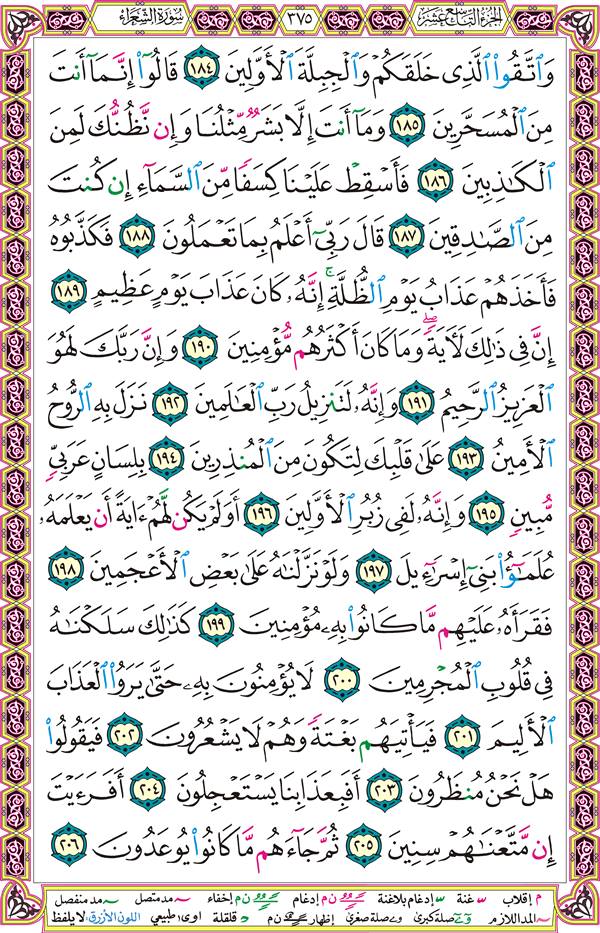 الجزء التاسع عشر ٣٧٥ سورة الشعراء
وَٱتَّقُوا۟ ٱلَّذِى خَلَقَكُمْ وَٱلْجِبِلَّةَ ٱلْأَوَّلِينَ ١٨٤ قَالُوٓا۟ إِنَّمَآ أَنتَ
مِنَ ٱلْمُسَحَّرِينَ ١٨٥ وَمَآ أَنتَ إِلَّا بَشَرٌ مِّثْلُنَا وَإِن نَّظُنُّكَ لَمِنَ
ٱلْكَـٰذِبِينَ ١٨٦ فَأَسْقِطْ عَلَيْنَا كِسَفًا مِّنَ ٱلسَّمَآءِ إِن كُنتَ
مِنَ ٱلصَّـٰدِقِينَ ١٨٧ قَالَ رَبِّىٓ أَعْلَمُ بِمَا تَعْمَلُونَ ١٨٨ فَكَذَّبُوهُ
فَأَخَذَهُمْ عَذَابُ يَوْمِ ٱلظُّلَّةِ ۚ إِنَّهُۥ كَانَ عَذَابَ يَوْمٍ عَظِيمٍ ١٨٩
إِنَّ فِى ذَٰلِكَ لَـَٔايَةً ۖ وَمَا كَانَ أَكْثَرُهُم مُّؤْمِنِينَ ١٩٠ وَإِنَّ رَبَّكَ لَهُوَ
ٱلْعَزِيزُ ٱلرَّحِيمُ ١٩١ وَإِنَّهُۥ لَتَنزِيلُ رَبِّ ٱلْعَـٰلَمِينَ ١٩٢ نَزَلَ بِهِ ٱلرُّوحُ
ٱلْأَمِينُ ١٩٣ عَلَىٰ قَلْبِكَ لِتَكُونَ مِنَ ٱلْمُنذِرِينَ ١٩٤ بِلِسَانٍ عَرَبِىٍّ
مُّبِينٍ ١٩٥ وَإِنَّهُۥ لَفِى زُبُرِ ٱلْأَوَّلِينَ ١٩٦ أَوَلَمْ يَكُن لَّهُمْ ءَايَةً أَن يَعْلَمَهُۥ
عُلَمَـٰٓؤُا۟ بَنِىٓ إِسْرَٰٓءِيلَ ١٩٧ وَلَوْ نَزَّلْنَـٰهُ عَلَىٰ بَعْضِ ٱلْأَعْجَمِينَ ١٩٨
فَقَرَأَهُۥ عَلَيْهِم مَّا كَانُوا۟ بِهِۦ مُؤْمِنِينَ ١٩٩ كَذَٰلِكَ سَلَكْنَـٰهُ
فِى قُلُوبِ ٱلْمُجْرِمِينَ ٢٠٠ لَا يُؤْمِنُونَ بِهِۦ حَتَّىٰ يَرَوُا۟ ٱلْعَذَابَ
ٱلْأَلِيمَ ٢٠١ فَيَأْتِيَهُم بَغْتَةً وَهُمْ لَا يَشْعُرُونَ ٢٠٢ فَيَقُولُوا۟
هَلْ نَحْنُ مُنظَرُونَ ٢٠٣ أَفَبِعَذَابِنَا يَسْتَعْجِلُونَ ٢٠٤ أَفَرَءَيْتَ
إِن مَّتَّعْنَـٰهُمْ سِنِينَ ٢٠٥ ثُمَّ جَآءَهُم مَّا كَانُوا۟ يُوعَدُونَ ٢٠٦
م إقلاب غنة إدغام بلاغنة ن م إدغام ن م إخفاء مد متصل مد منفصل
المد اللازم صلة كبرى صلة صغرى إظهار ن م قلقلة اوى طبيعي اللون الأزرق: لا يلفظ